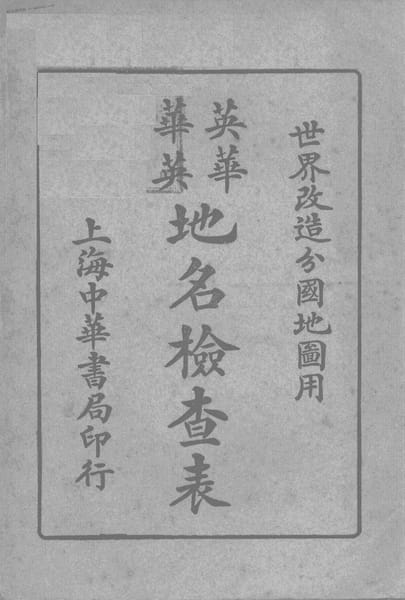 世界改造分國地圖用
英華
華英
地名檢查表
上海中華書局印行